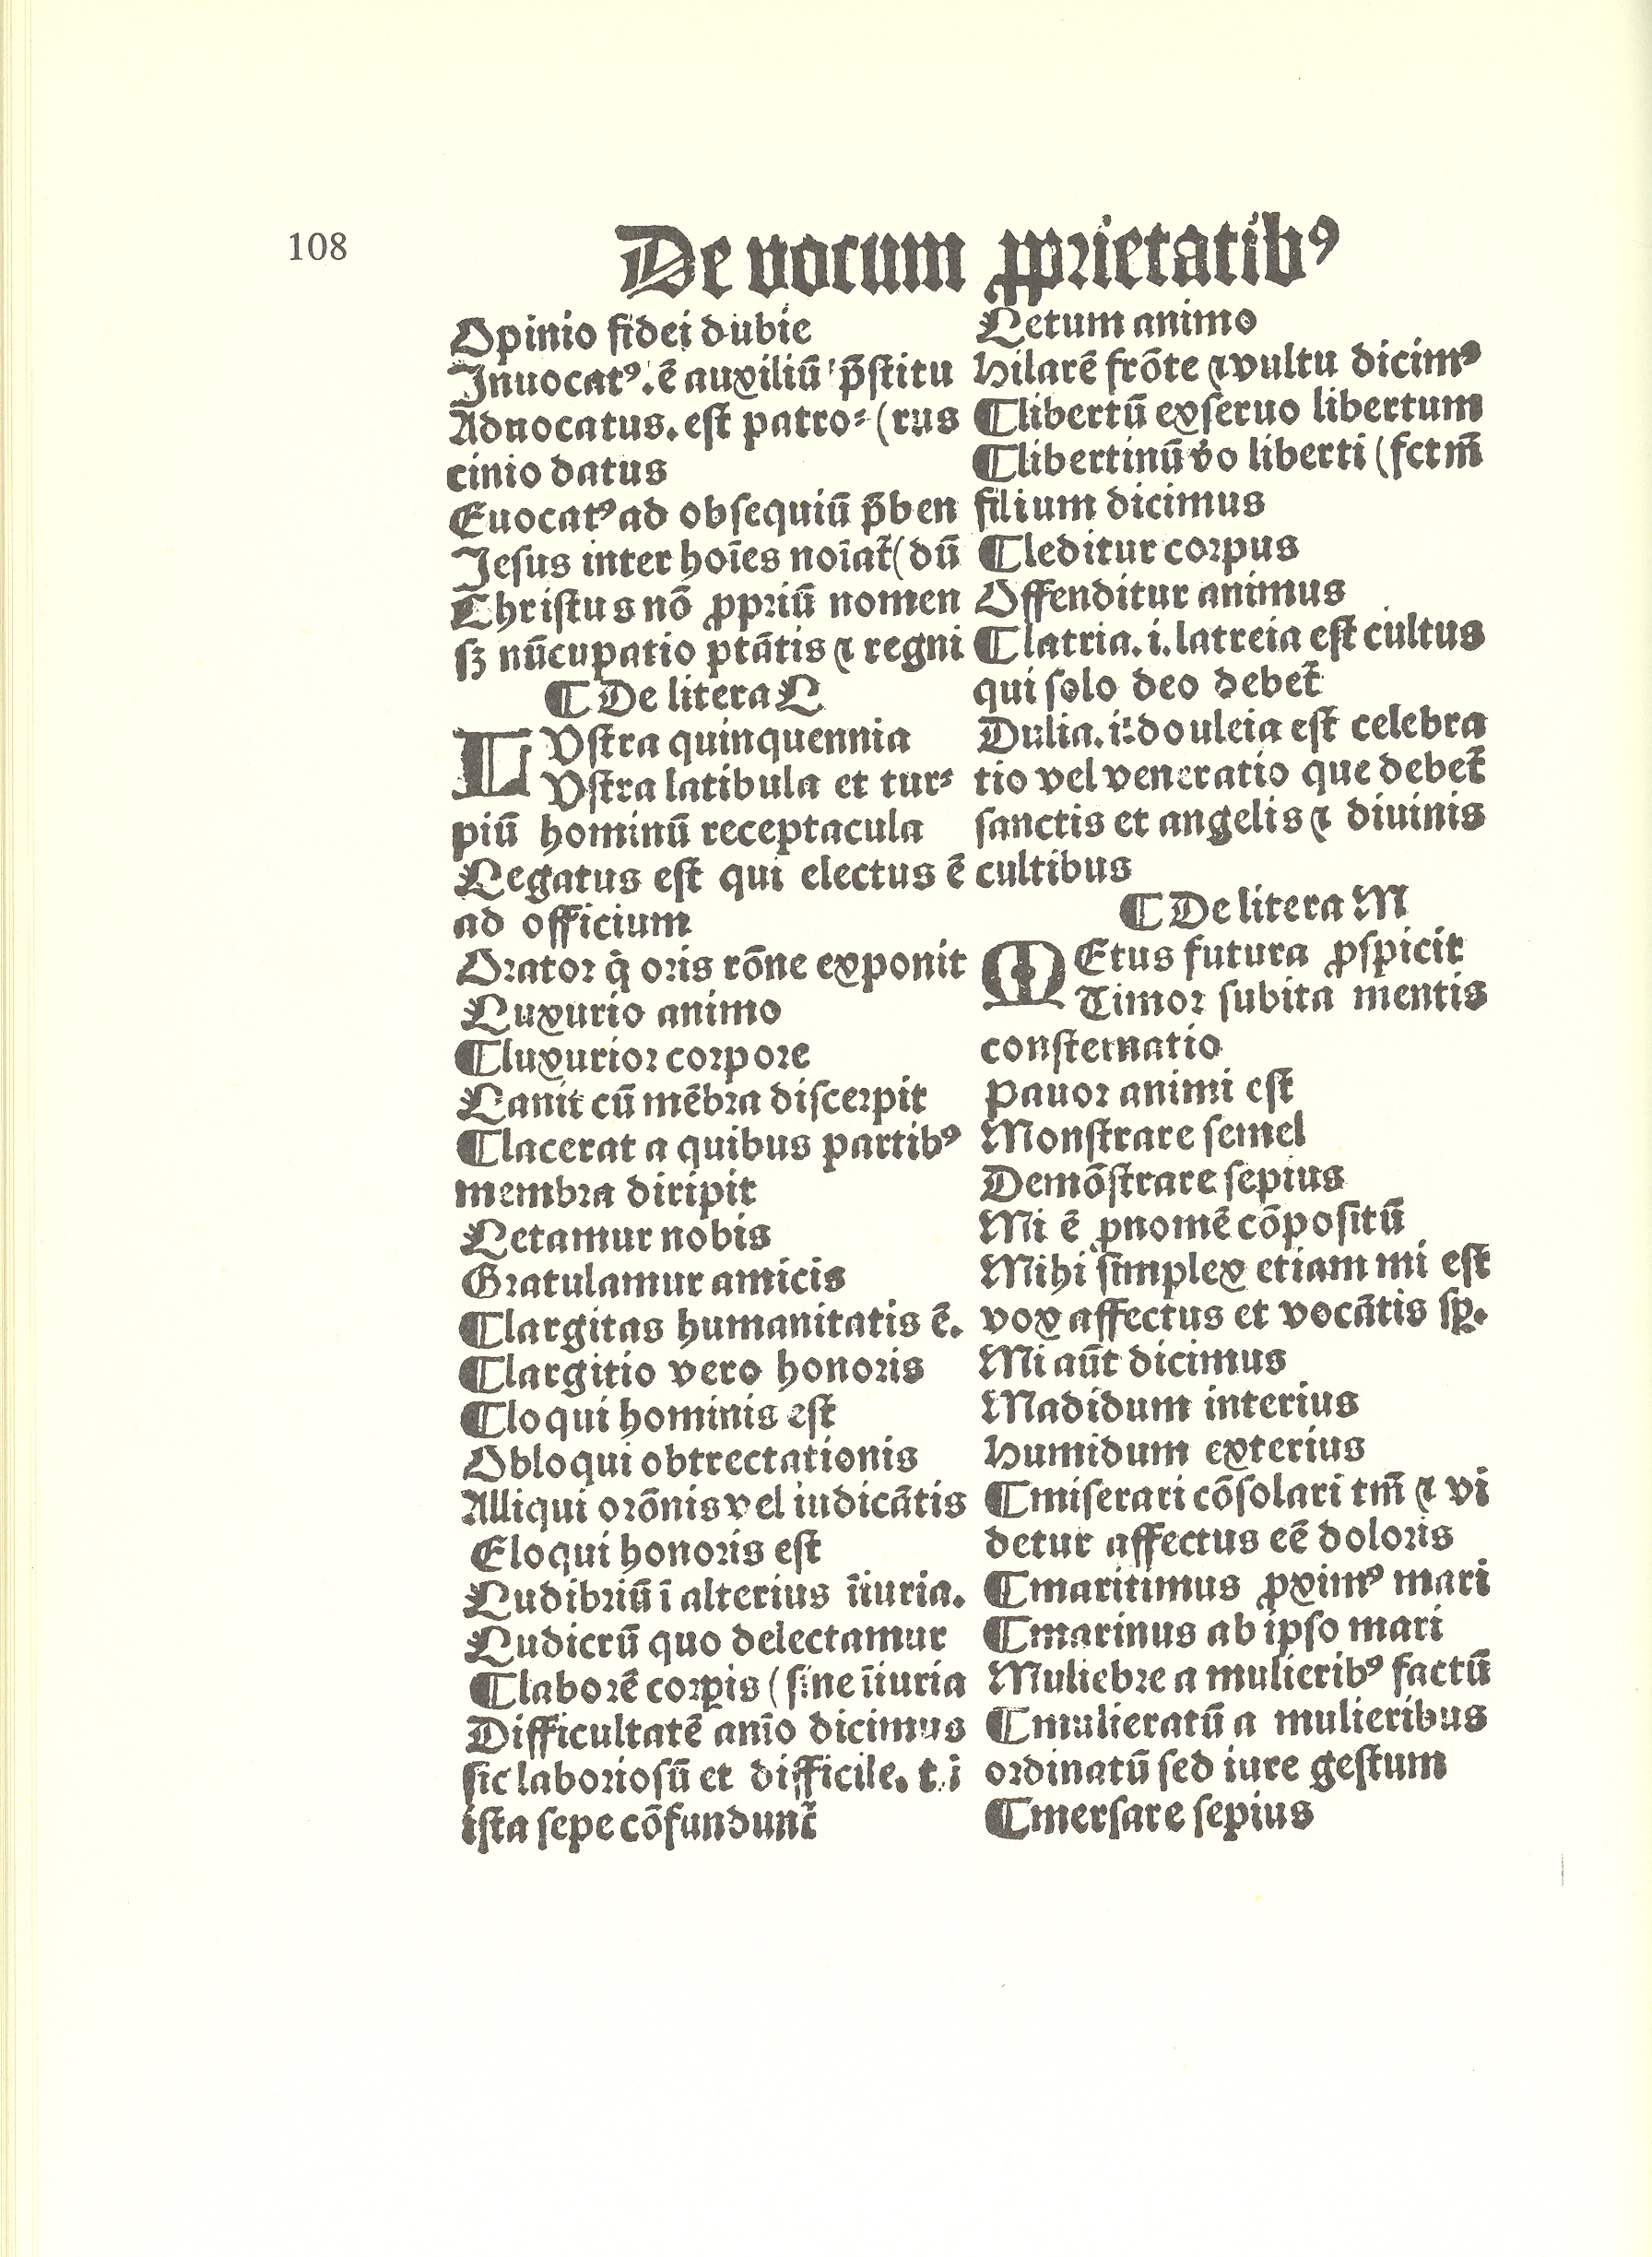 108
De vocum ꝓprietatibꝰ
Opinio fidei dubie
Inuocatꝰ.ē auxiliū p̄stitu
Aduocatus. est patro⸗(rus
cinio datus
Euocatꝰ ad obsequiū p̄ben
Jesus inter hoīes noīat̄(dū
Christus nō ꝓpriū nomen
sꝫ nūcupatio ptātis ⁊ regni
¶ De litera L
LVstra quinquennia
Vstra latibula et tur⸗
piū hominū receptacula
Legatus est qui electus ē
ad officium
Orator q̇ oris rōne exponit
Luxurio animo
¶luxurior corpore
Lanit cū mēbra discerpit
¶lacerat a quibus partibꝰ
membra diripit
Letamur nobis
Gratulamur amicis
¶largitas humanitatis ē.
¶largitio vero honoris
¶loqui hominis est
Obloqui obtrectationis
Alliqui orōnis vel iudicātis
Eloqui honoris est
Ludibriū ī alterius īiuria.
Ludicrū quo delectamur
¶laborē corꝑis (sine īiuria
Difficultatē anīo dicimus
sic laboriosū et difficile. t.i
ista sepe cōfundunt̄
Letum animo
Hilarē frōte ⁊ vultu dicimꝰ
¶libertū ex seruo libertum
¶libertinū v̇o liberti (fctm̄
filium dicimus
¶leditur corpus
Offenditur animus
¶latria. i. latreia est cultus
qui solo deo debet̄
Dulia. i. douleia est celebra
tio vel veneratio que debet̄
sanctis et angelis ⁊ diuinis
cultibus
¶ De litera M
MEtus futura ꝓspicit
Timor subita mentis
consternatio
Pauor animi est
Monstrare semel
Demōstrare sepius
Mi ē ꝓnomē cōpositū
Mihi simplex etiam mi est
vox affectus et vocātis sꝑ.
Mi aūt dicimus
Madidum interius
Humidum exterius
¶miserari cōsolari tm̄ ⁊ vi
detur affectus eē doloris
¶maritimus ꝓximꝰ mari
¶marinus ab ipso mari
Muliebre a mulieribꝰ factū
¶mulieratū a mulieribus
ordinatū sed iure gestum
¶mersare sepius